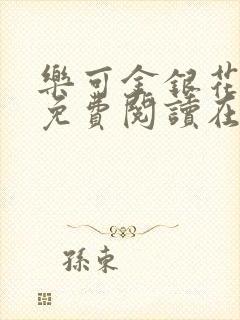 樂可金銀花
免費閱讀在
孫東